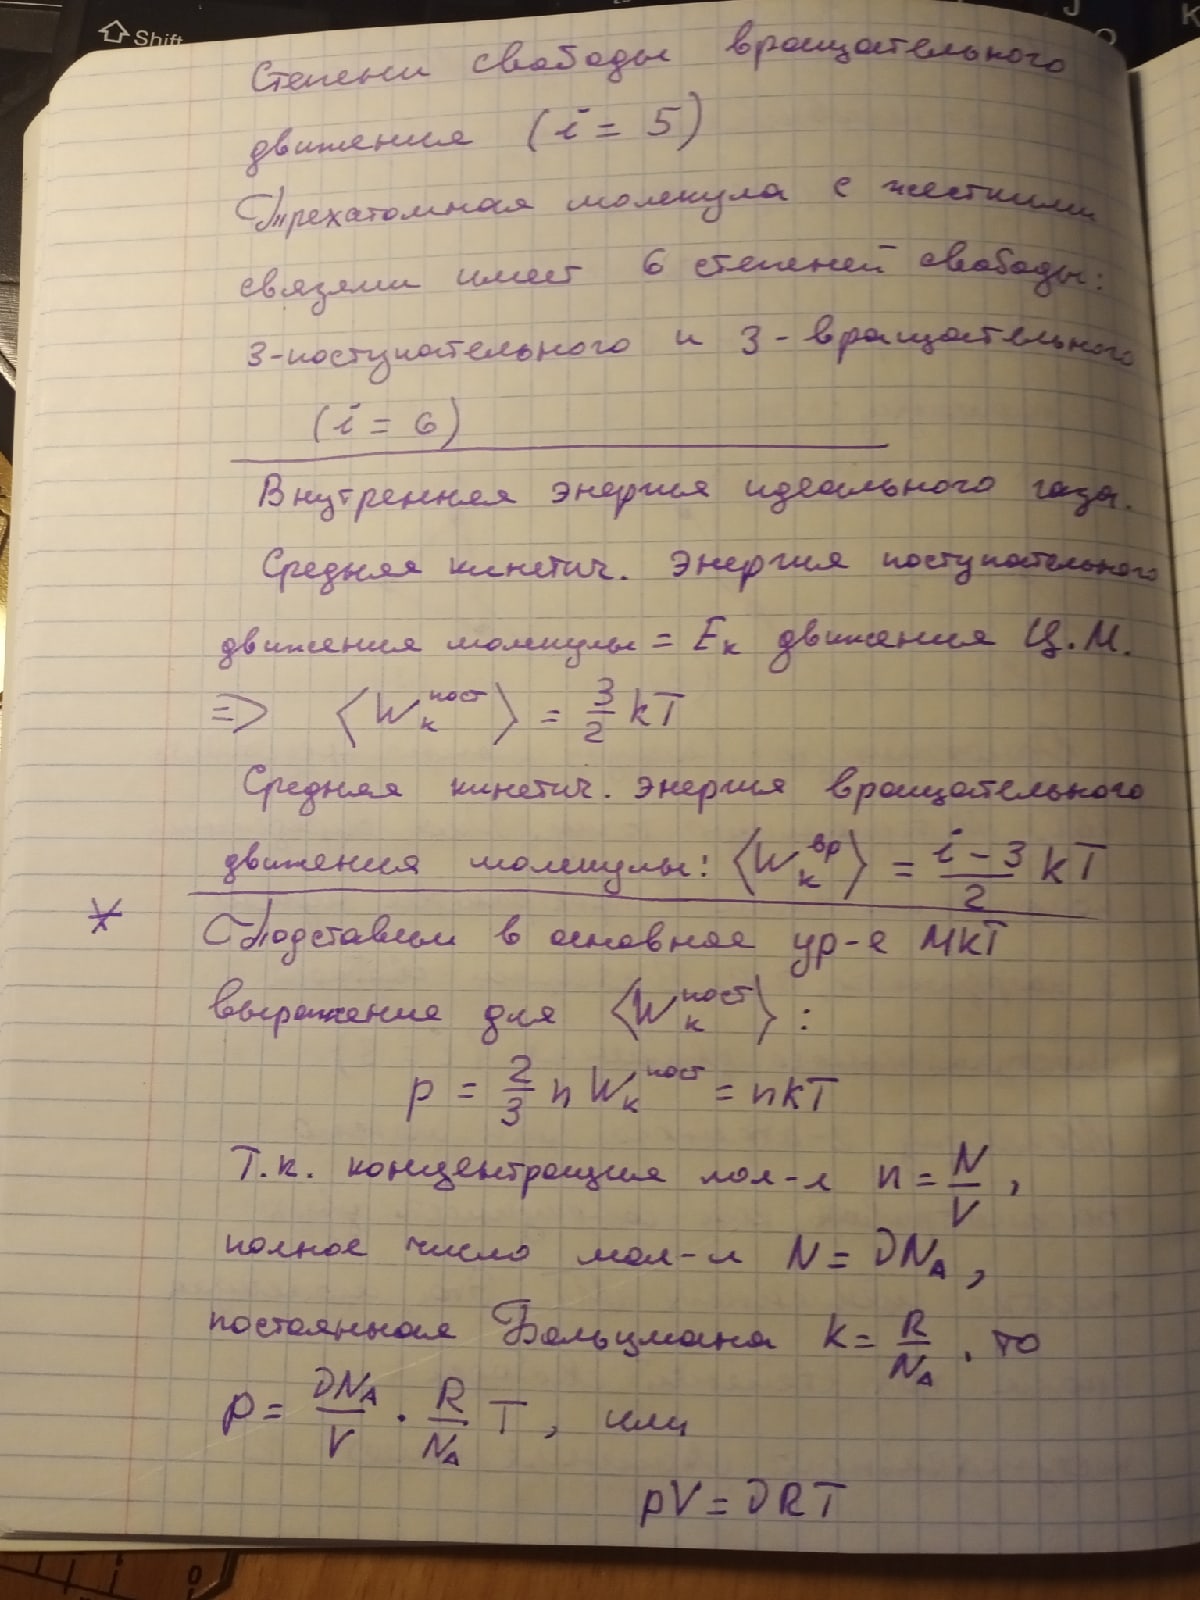 Shift
Степени свободы вращательного
движения (i = 5)
Трехатомная молекула с жесткими
связями имеет 6 степеней свободы:
3-поступательного и 3-вращательного
(i = 6)
Внутренняя энергия идеального газа.
Средняя кинетич. энергия поступательного
движения молекулы = Eк движения Ц.М.
=> ⟨Wк^пост⟩ = 3/2 kT
Средняя кинетич. энергия вращательного
движения молекулы: ⟨Wк^вр⟩ = (i – 3)/2 kT
* Подставим в основное ур-е МКТ
выражение для ⟨Wк^пост⟩:
p = 2/3 n Wк^пост = nkT
Т.к. концентрация мол-л n = N/V,
полное число мол-л N = νN_A,
постоянная Больцмана k = R/N_A, то
p = νN_A/V · R/N_A T, или
pV = νRT